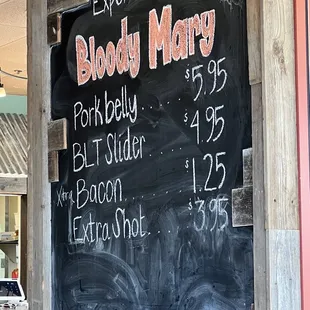 Bloody Mary
Porkbelly.... $5.95
BLT Slider... $4.95
Xtra Bacon.... $1.25
Extra Shot.... $3.95